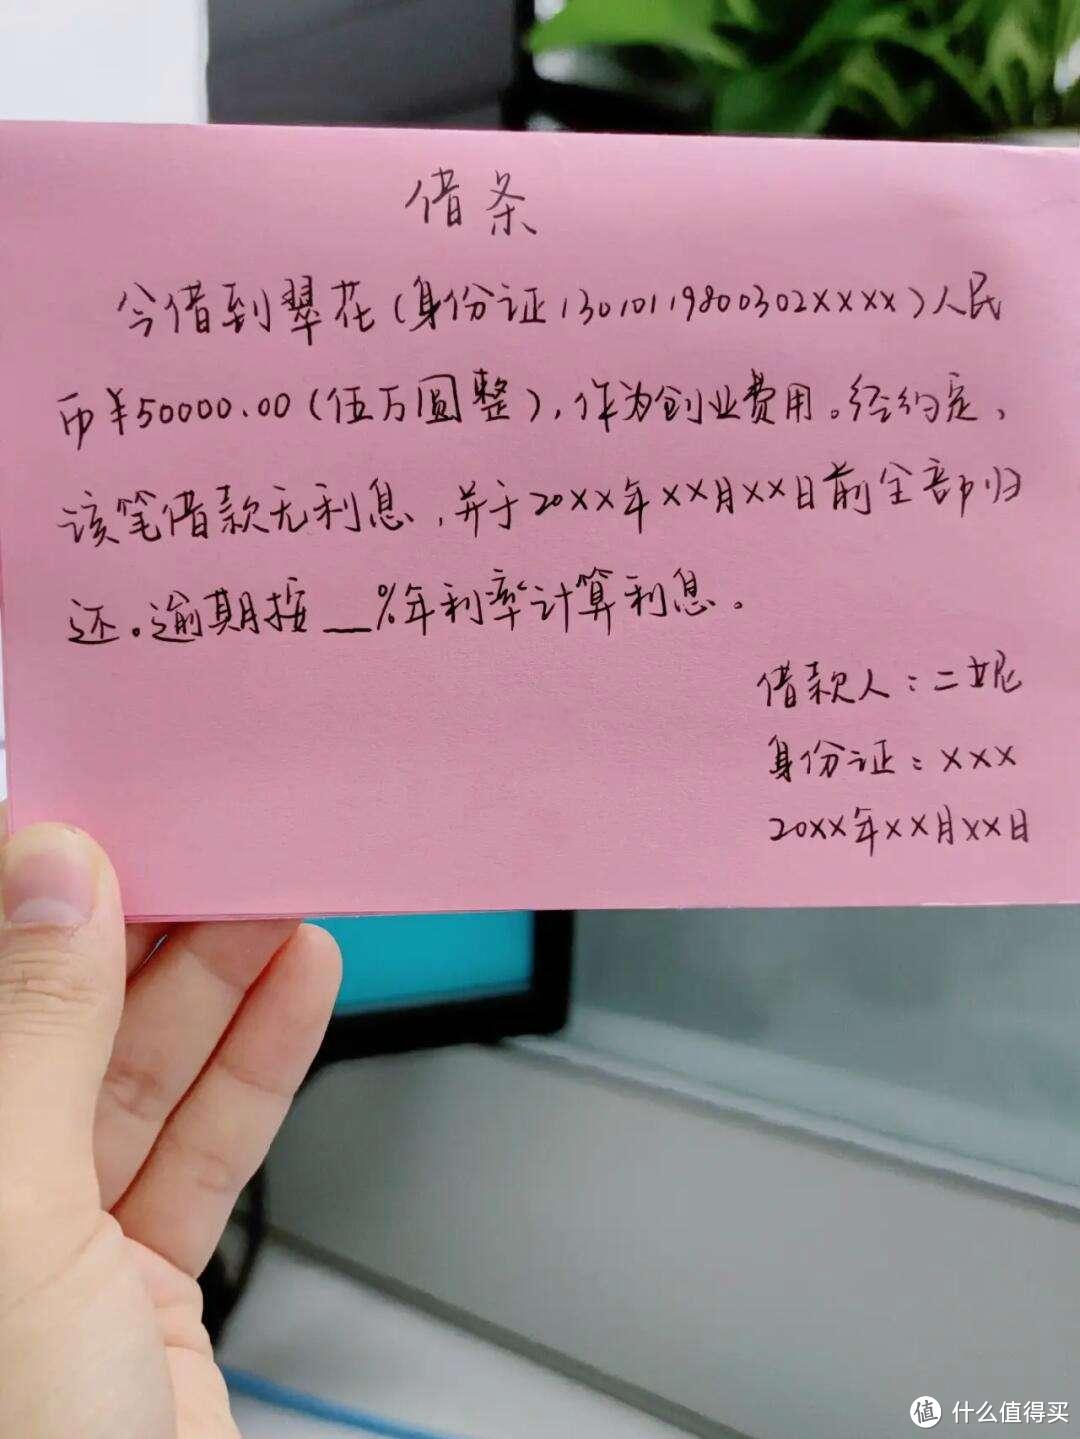 借条
今借到翠花(身份证13010119800302XXXX)人民
币¥50000.00(伍万圆整),作为创业费用。经约定,
该笔借款无利息,并于20XX年XX月XX日前全部归
还。逾期按__%年利率计算利息。
借款人:二妮
身份证:XXX
20XX年XX月XX日
值 什么值得买